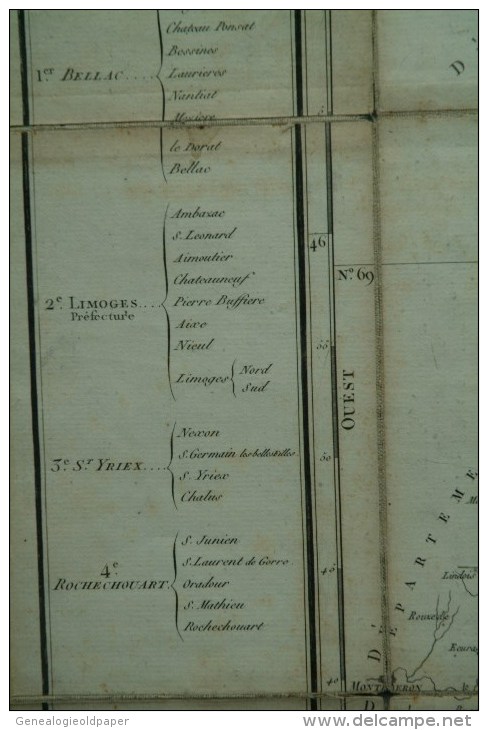 Chateau Ponsat
Bessines
1.er BELLAC....
Laurieres
Nantiat
Meziere
le Dorat
Bellac
Ambazac
S. Leonard
Aimoutier
Chateauneuf
2.e LIMOGES....
Préfecture
Pierre Buffiere
Aixe
Nieul
Limoges
Nord
Sud
Nexon
S. Germain les belles filles
3.e S.t YRIEX....
S. Yriex
Chalus
S. Junien
4.e
ROCHECHOUART.
S. Laurent de Gorre
Oradour
S. Mathieu
Rochechouart
46
N.o 69
55
OUEST
50
45
40
D'
DÉPARTEME
D
MONTBERON
Genealogieoldpaper
www.delcampe.net